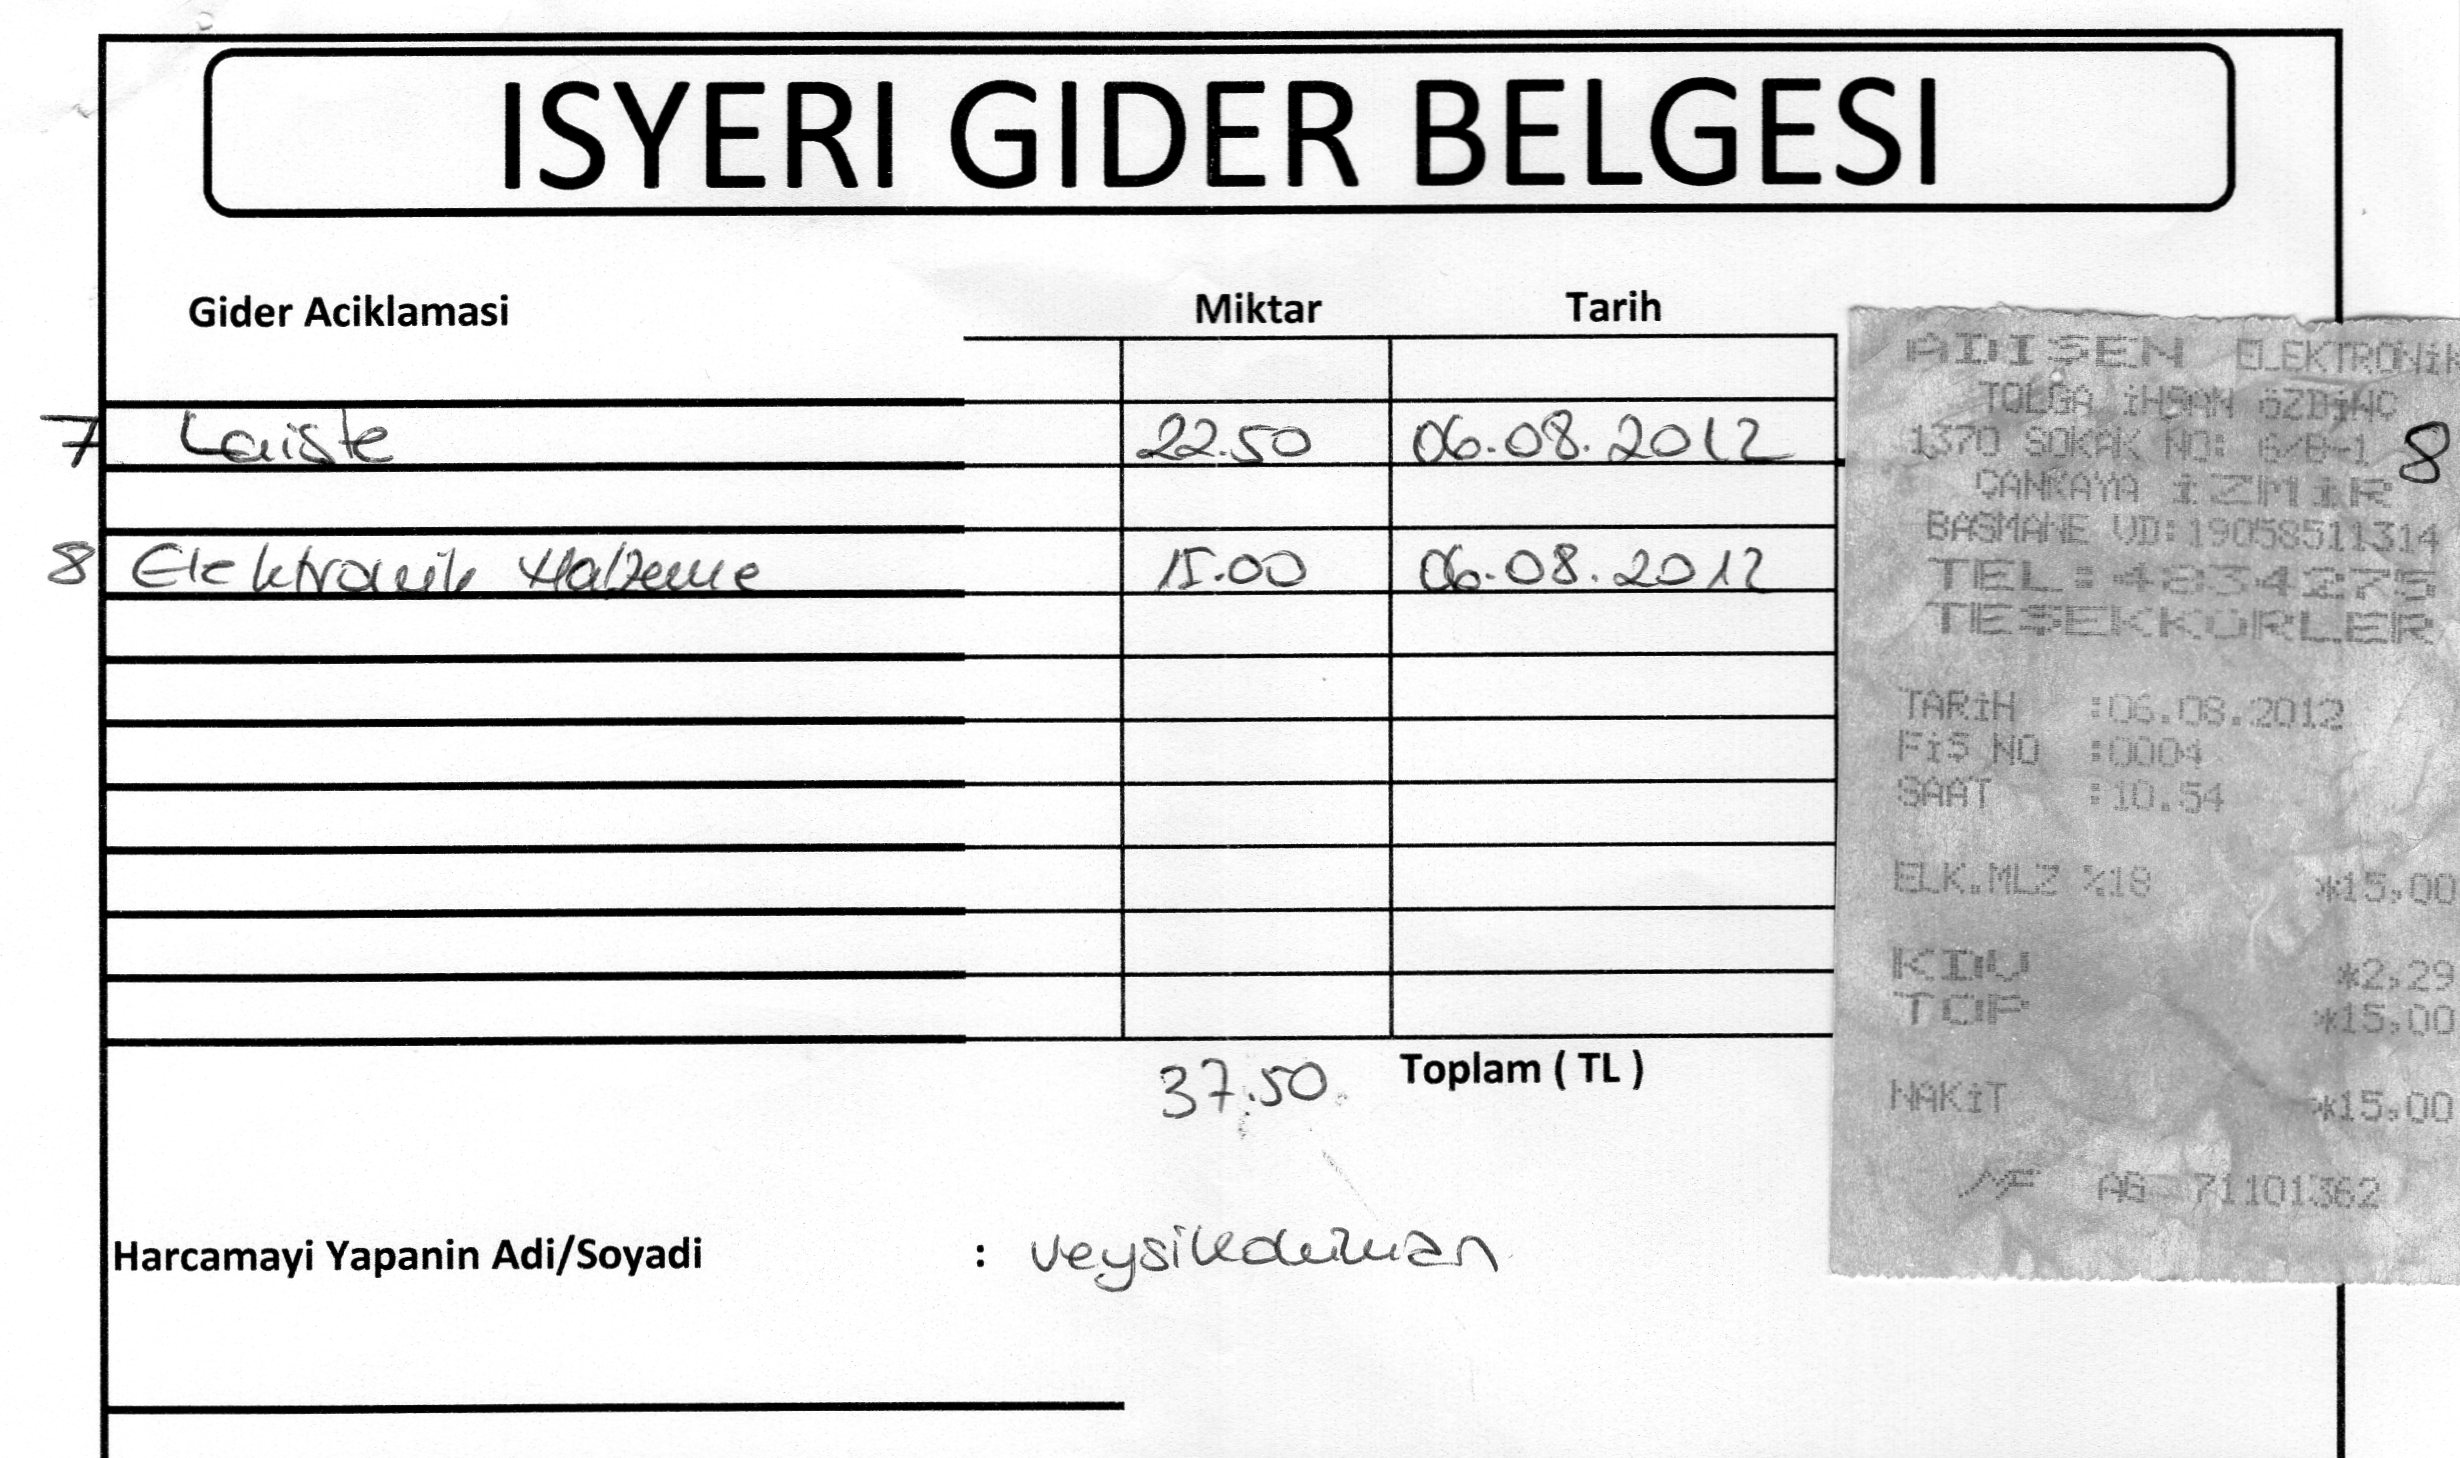 ISYERI GIDER BELGESI
Gider Aciklamasi Miktar Tarih
7 Laiste 22.50 06.08.2012
8 Elektronik Malzeme 15.00 06.08.2012
37.50 Toplam ( TL )
Harcamayi Yapanin Adi/Soyadi :
ADIŞEN ELEKTRONiK
TOLGA iHSAN öZDiNÇ
1370 SOKAK NO: 6/B-1
8
ÇANKAYA iZMiR
BASMANE VD:19058511314
TEL:4834275
TEŞEKKÜRLER
TARiH :06.08.2012
FiŞ NO :0004
SAAT :10.54
ELK.MLZ %18 *15,00
KDV *2,29
TOP *15,00
NAKiT *15,00
MF AB 71101362